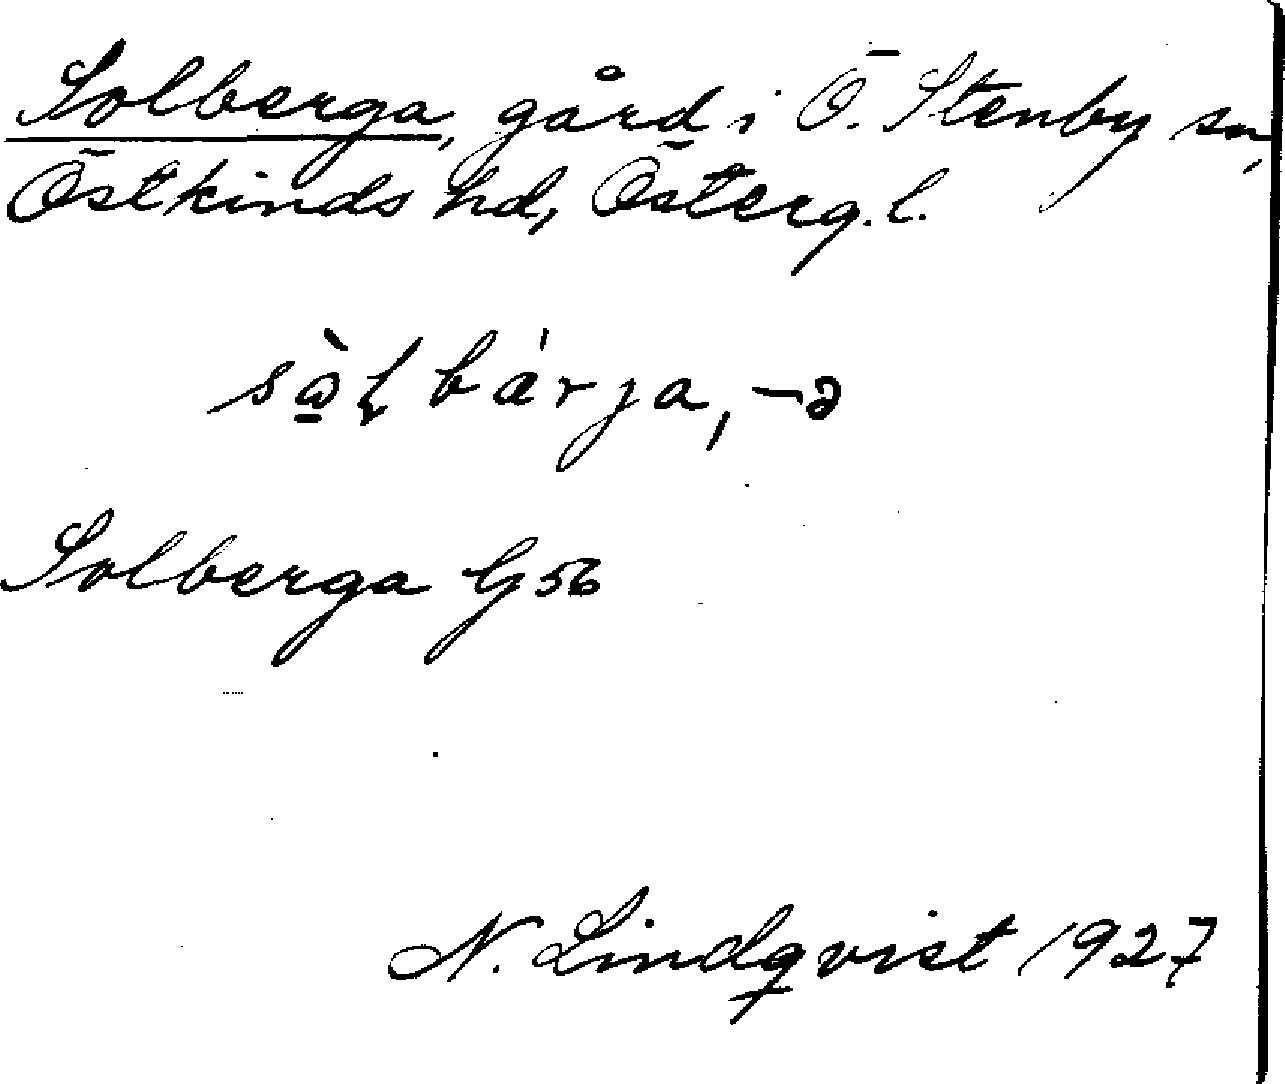 Solberga, gård i Ö. Stenby sn,
Östkinds hd, Österg.l.
sὰ̱ɬbárja, -ə
Solberga G 56
N. Lindqvist 1927